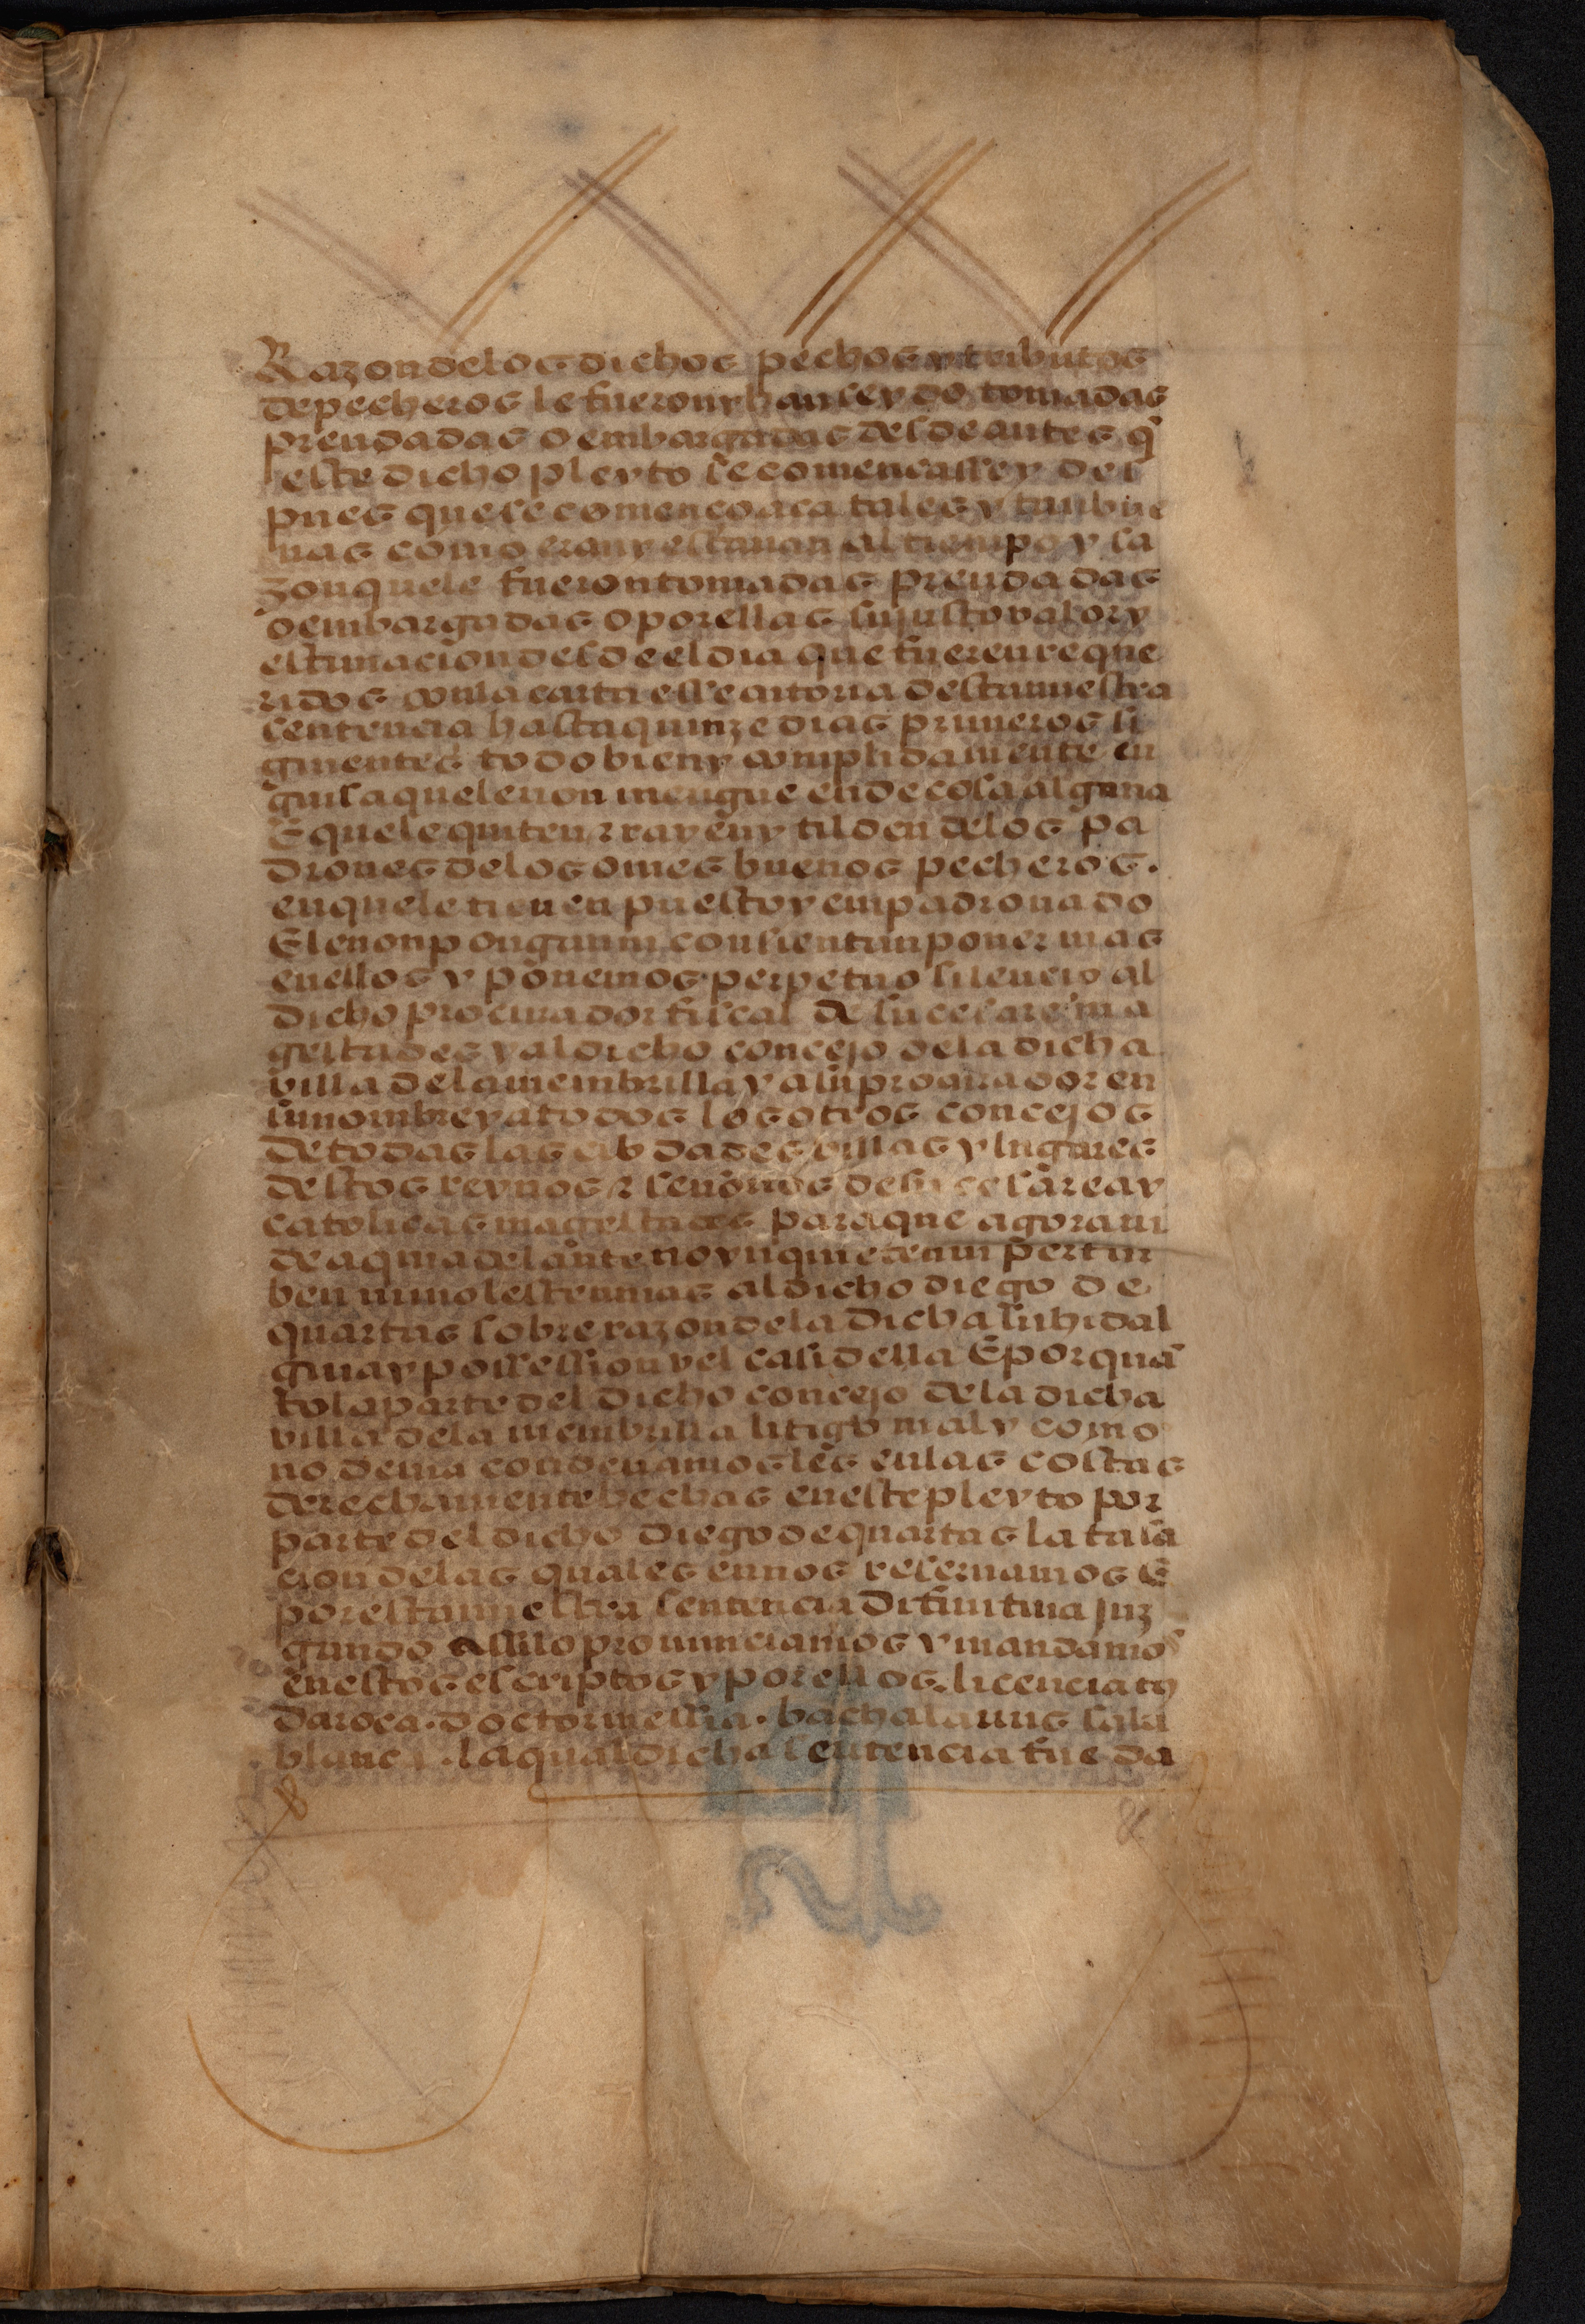 Razon delos dichos pechos y tributos
de pecheros le fueron y han seydo tomadas
prendadas o embargadas desde antes q̃
este dicho pleyto se començasse y des
pues que se començo aca tales y tan bue
nas como eran y estauan al tiempo y sa
zon que le fueron tomadas prendadas
o embargadas o por ellas su justo valor y
estimacion desde el dia que fueren reque
ridos con la carta essecutoria desta nuestra
sentencia hasta quinze dias primeros si
guientes todo bien y complidamente en
guisa que le non mengue ende cosa alguna
E que le quiten z rayen y tilden delos pa
drones delos omes buenos pecheros.
en que le tienen puesto y empadronado
E le non pongan ni consientan poner mas
enellos y ponemos perpetuo silencio al
dicho procurador fiscal de su cesarea ma
gestades y al dicho concejo dela dicha
villa dela membrilla y a su procurador en
su nombre y a todos los otros concejos
de todas las cibdades villas y lugares
destos reynos z señorios de su cesarea y
catolicas magestades para que agora ni
de aqui adelante no ynquieten ni pertur
ben ni molesten mas al dicho diego de
quartas sobre razon dela dicha su hidal
guia y possession vel casi della E por quã
to la parte del dicho concejo dela dicha
villa dela membrilla litigo mal y como
no deuia condenamosles enlas costas
derechamente hechas eneste pleyto por
parte del dicho diego de quartas la tasa
cion delas quales en nos reseruamos E
por esta nuestra sentencia difinitiua juz
gando assi lo pronunciamos y mandamos
enestos escriptos y por ellos. licenciatus
daroca. doctor messia. bachalarius sala
blanca. la qual dicha sentencia fue da